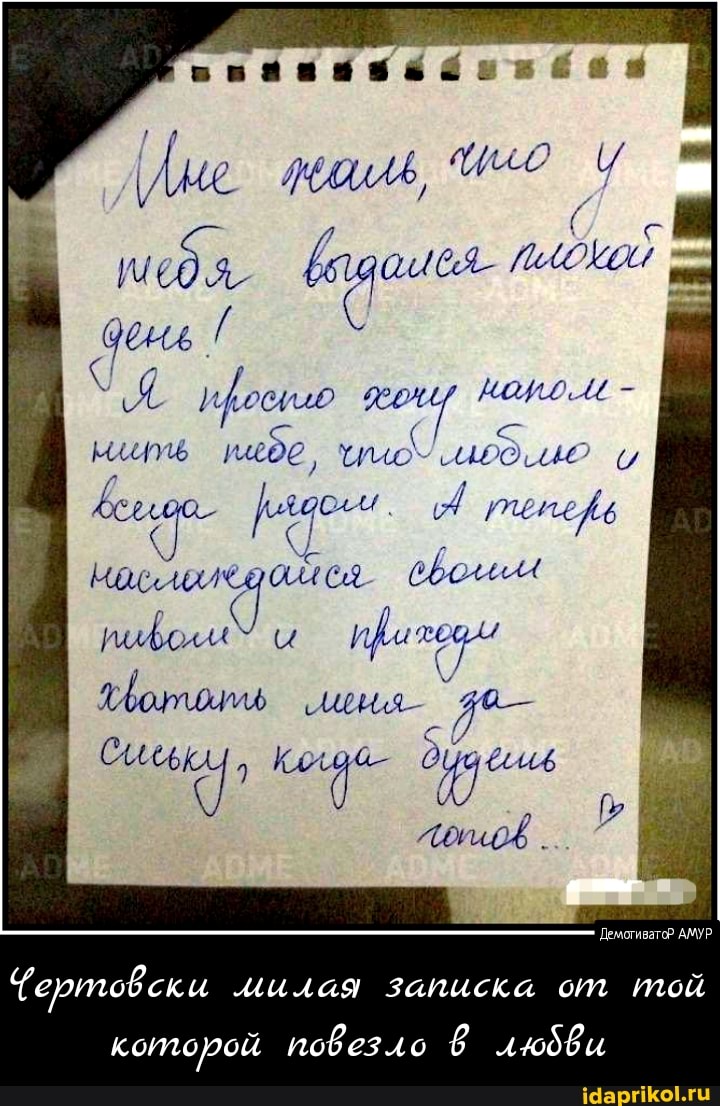 Мне жаль, что у
тебя выдался плохой
день!
Я просто хочу напом-
нить тебе, что люблю и
всегда рядом. А теперь
наслаждайся своим
пивом и приходи
хватать меня за
сиську, когда будешь
готов...
ДемотиватоР АМУР
Чертовски милая записка от той
которой повезло в любви
idaprikol.ru